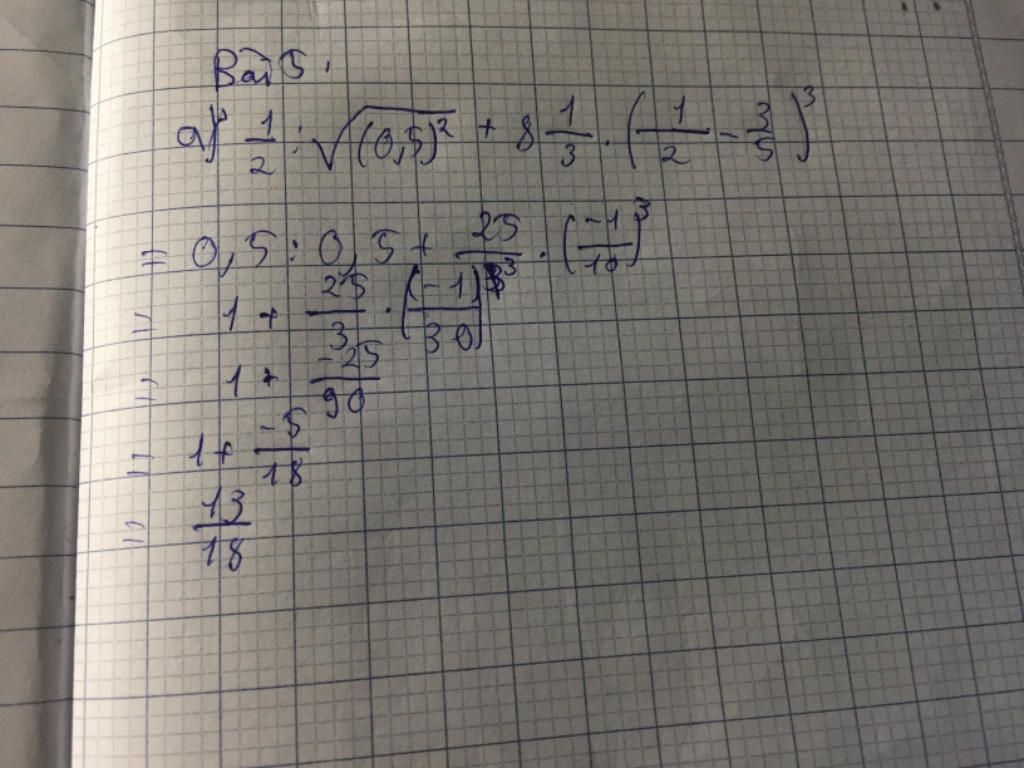 Bài 5.
a) 1/2 : √(0,5)² + 8 1/3 . (1/2 - 3/5)³
= 0,5 : 0,5 + 25/3 . (-1/10)³
= 1 + 25/3 . (-1)³/30
= 1 + -25/90
= 1 + -5/18
= 13/18